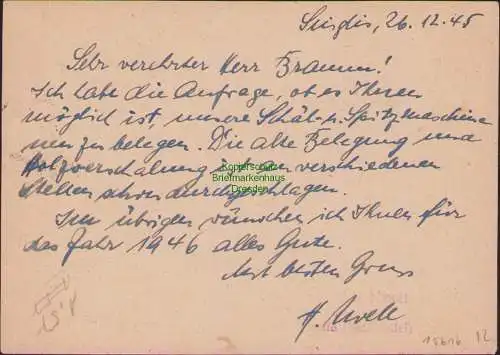 26.12.45
Sehr verehrter Herr Braum!
Ich habe die Anfrage, ob es Ihnen
möglich ist, unsere Schäl- u. Spitzmaschine
neu zu belegen. Die alte Belegung und
Holzverschalung ist an verschiedenen
Stellen schon durchgeschlagen.
Im übrigen wünschen ich Ihnen für
das Jahr 1946 alles Gute.
Mit besten Gruss
Kopierschutz
Briefmarkenhaus
Dresden
15616 12